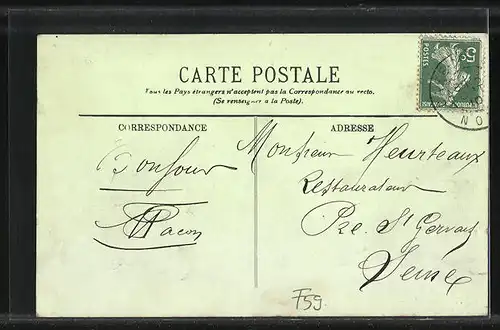 CARTE POSTALE
Tous les Pays étrangers n'acceptent pas la Correspondance au recto.
(Se renseigner à la Poste).
CORRESPONDANCE
Bonjour
ADRESSE
Monsieur Heurteaux
Restaurateur
Pre. St Gervais
Seine
5c
POSTES
F59